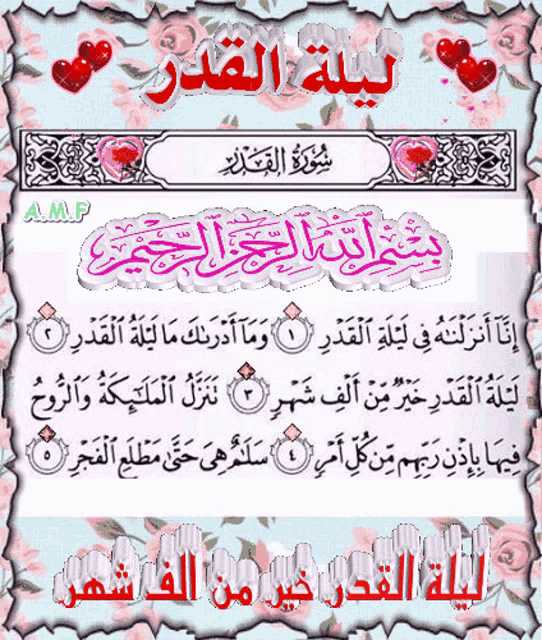 ليلة القدر
سُورَةُ القَدْرِ
A.M.F
بِسْمِ ٱللَّهِ ٱلرَّحْمَٰنِ ٱلرَّحِيمِ
إِنَّآ أَنزَلْنَٰهُ فِى لَيْلَةِ ٱلْقَدْرِ ١ وَمَآ أَدْرَىٰكَ مَا لَيْلَةُ ٱلْقَدْرِ ٢
لَيْلَةُ ٱلْقَدْرِ خَيْرٌ مِّنْ أَلْفِ شَهْرٍ ٣ تَنَزَّلُ ٱلْمَلَٰٓئِكَةُ وَٱلرُّوحُ
فِيهَا بِإِذْنِ رَبِّهِم مِّن كُلِّ أَمْرٍ ٤ سَلَٰمٌ هِىَ حَتَّىٰ مَطْلَعِ ٱلْفَجْرِ ٥
ليلة القدر خير من الف شهر